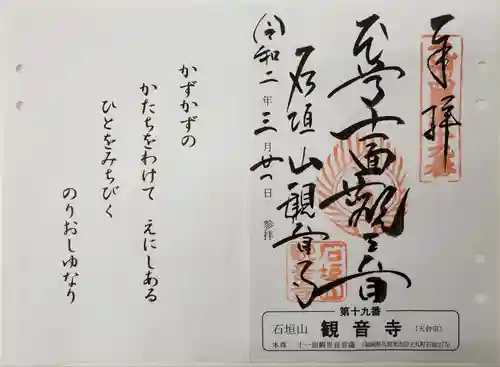 奉拝
本尊十一面観世音
石垣山観音寺
(令)和二年三月廿一日 参拝
第十九番
石垣山 観音寺 (天台宗)
本尊 十一面観世音菩薩
かずかずの
かたちをわけて えにしある
ひとをみちびく
のりおしゆなり